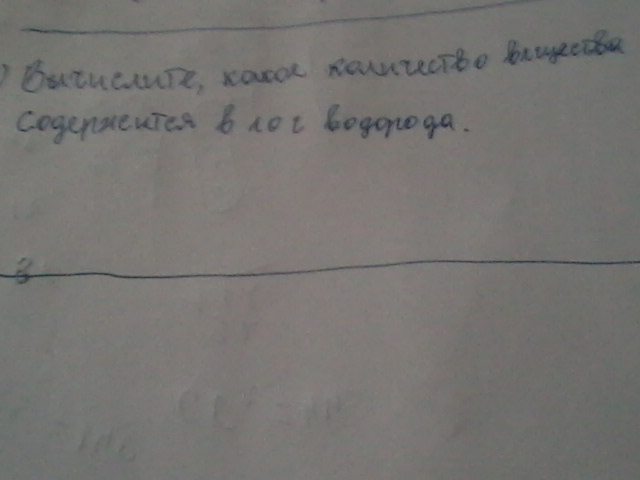 ) Вычислите, какое количество вещества
содержится в 10 г водорода.
3